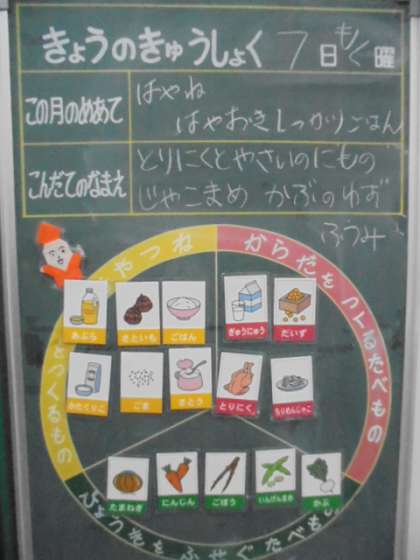 きょうのきゅうしょく 7日もく曜
この月のめあて はやね
はやおきしっかりごはん
こんだてのなまえ とりにくとやさいのにもの
じゃこまめ かぶのゆず
ふうみ
やつねつをつくるもの
からだをつくるたべもの
あぶら さといも ごはん ぎゅうにゅう だいず
かたくりこ ごま さとう とりにく ちりめんじゃこ
たまねぎ にんじん ごぼう いんげんまめ かぶ
びょうきをふせぐたべもの